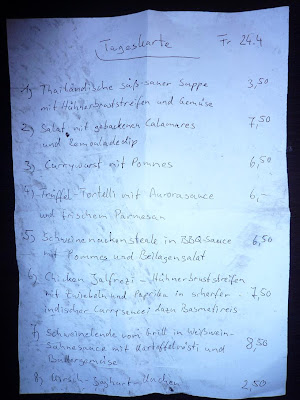 Tageskarte Fr 24.4
1) Thailändische süß-sauer Suppe 3,50
mit Hühnerbruststreifen und Gemüse
2) Salat mit gebackenen Calamares 7,50
und Remouladedip
3) Currywurst mit Pommes 6,50
4) Trüffel-Tortelli mit Aurorasauce 6,-
und frischem Parmesan
5) Schweinenackensteak in BBQ-Sauce 6,50
mit Pommes und Beilagensalat
6) Chicken Jalfrezi - Hühnerbruststreifen
mit Zwiebeln und Paprika in scharfer 7,50
indischer Currysauce dazu Basmatireis
7) Schweinelende vom Grill in Weißwein-
Sahnesauce mit Kartoffelrösti und 8,50
Buttergemüse
8) Kirsch-Joghurt-Kuchen 2,50